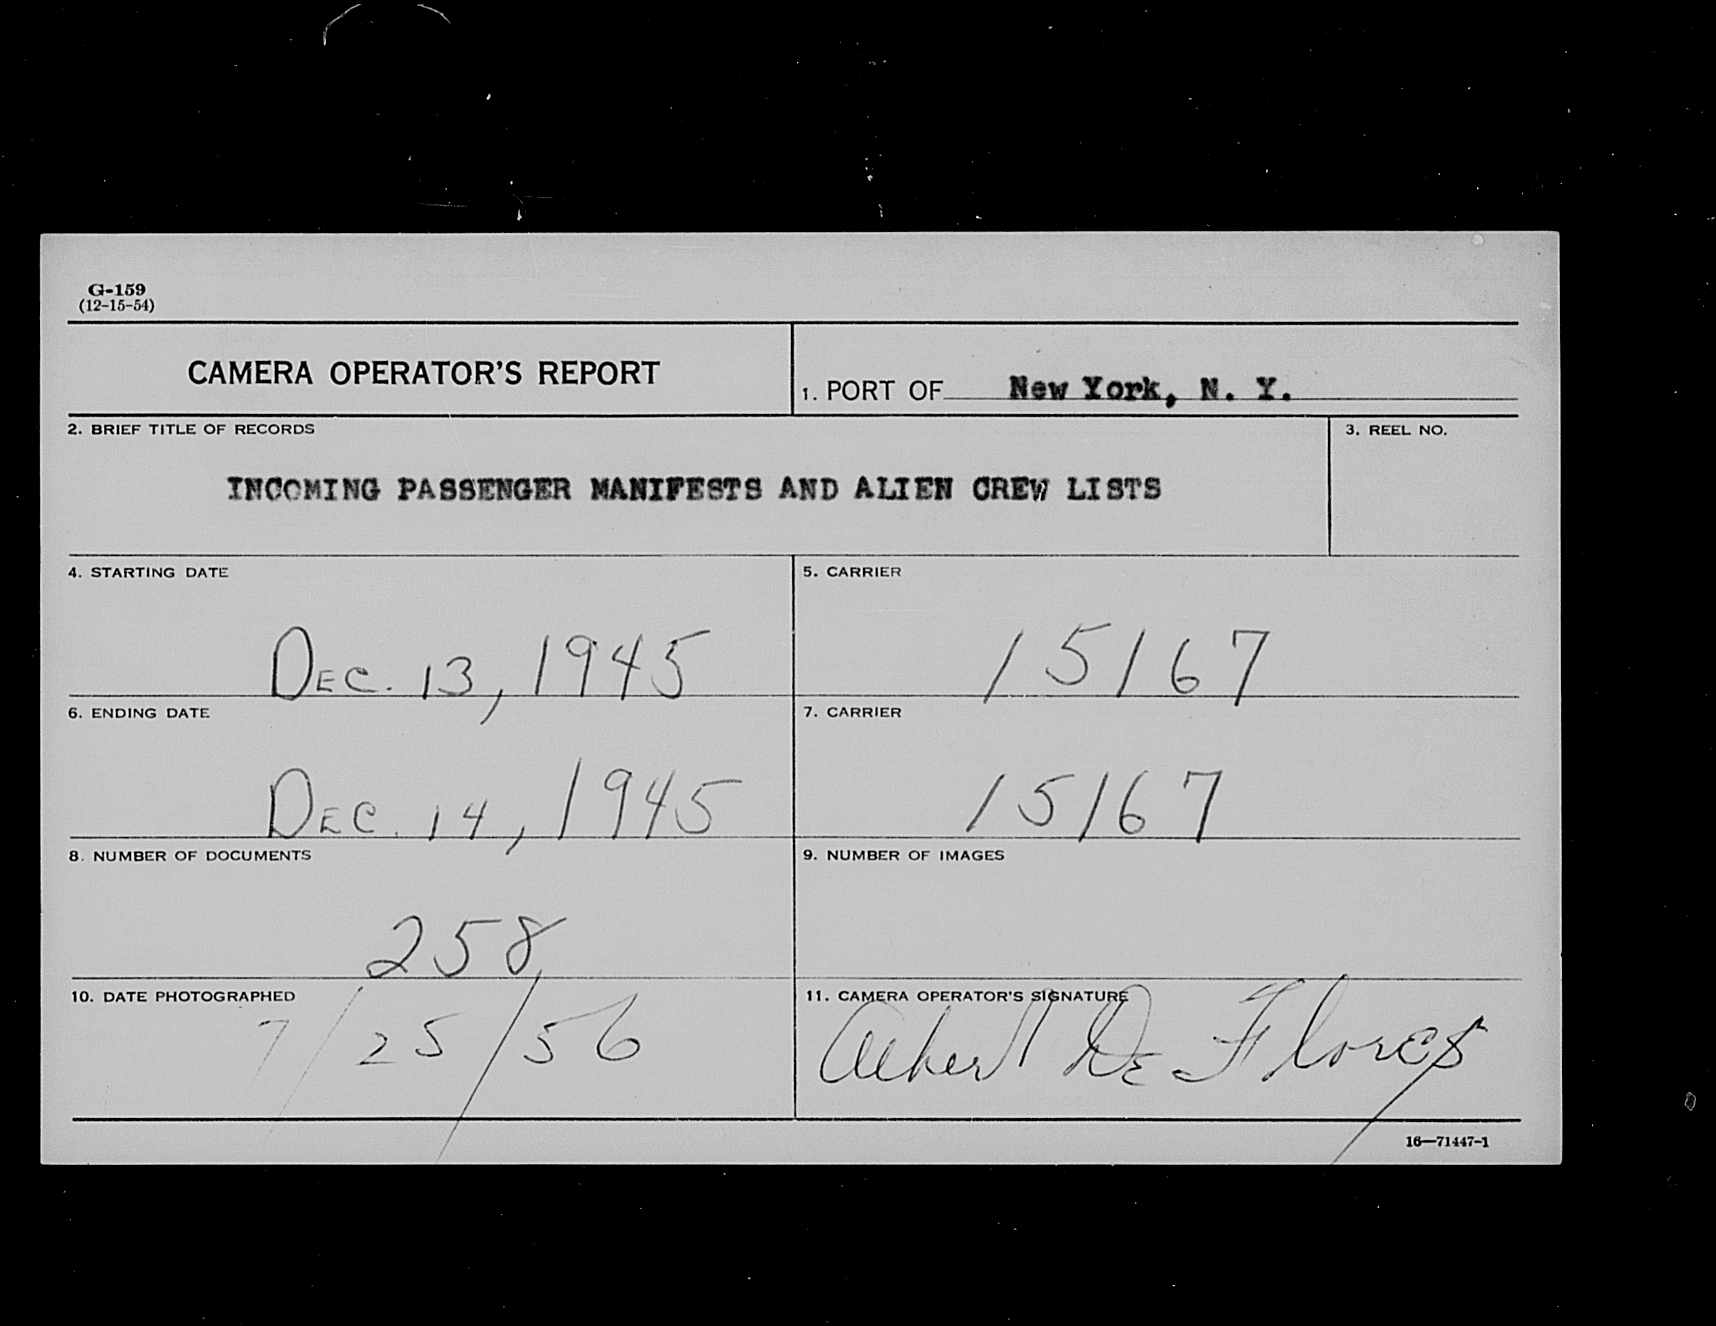 G-159
(12-15-54)
CAMERA OPERATOR'S REPORT
1. PORT OF New York, N. Y.
2. BRIEF TITLE OF RECORDS
3. REEL NO.
INCOMING PASSENGER MANIFESTS AND ALIEN CREW LISTS
4. STARTING DATE
5. CARRIER
DEC. 13, 1945
15167
6. ENDING DATE
7. CARRIER
DEC. 14, 1945
15167
8. NUMBER OF DOCUMENTS
9. NUMBER OF IMAGES
258
10. DATE PHOTOGRAPHED
11. CAMERA OPERATOR'S SIGNATURE
7/25/56
Albert De Flores
16—71447-1